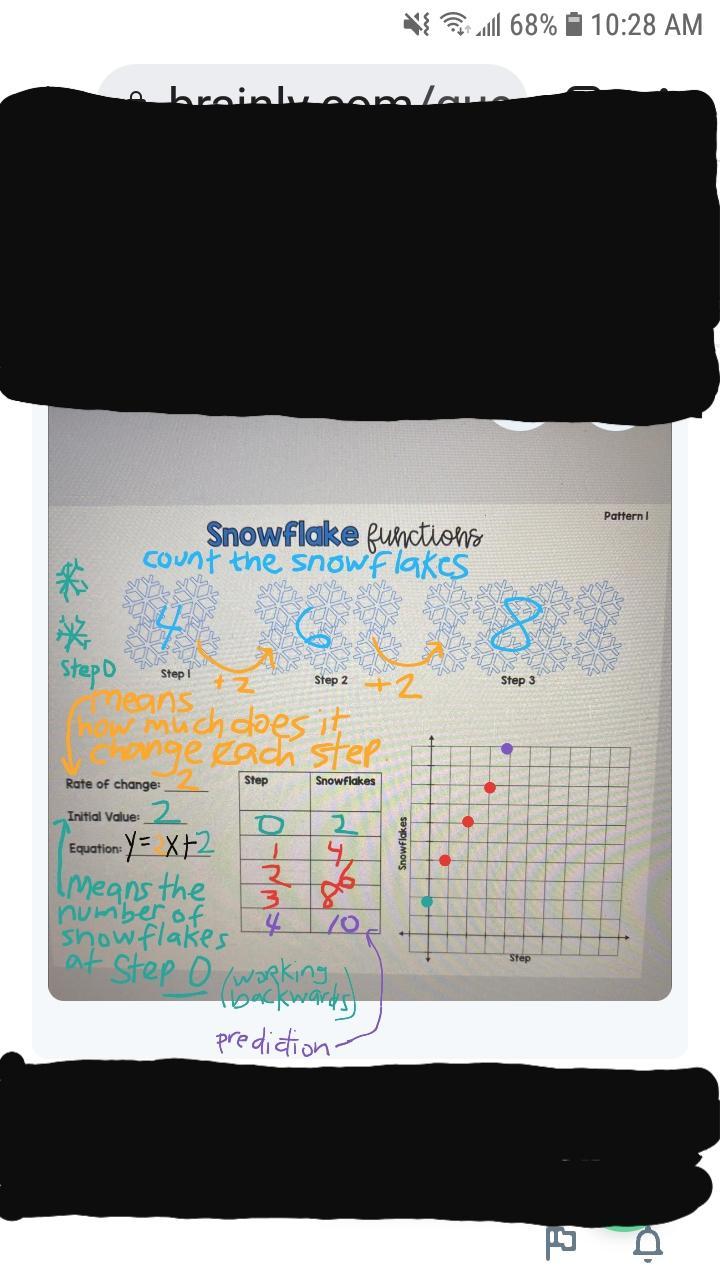 68% 10:28 AM
Pattern 1
Snowflake functions
count the snowflakes
4 6 8
Step 0
Step 1 +2 Step 2 +2 Step 3
means
how much does it
change each step.
Rate of change: 2
Initial Value: 2
Equation: y=2x+2
Means the
number of
snowflakes
at Step 0
(working
backwards)
prediction
Step Snowflakes
0 2
1 4
2 6
3 8
4 10
Snowflakes
Step